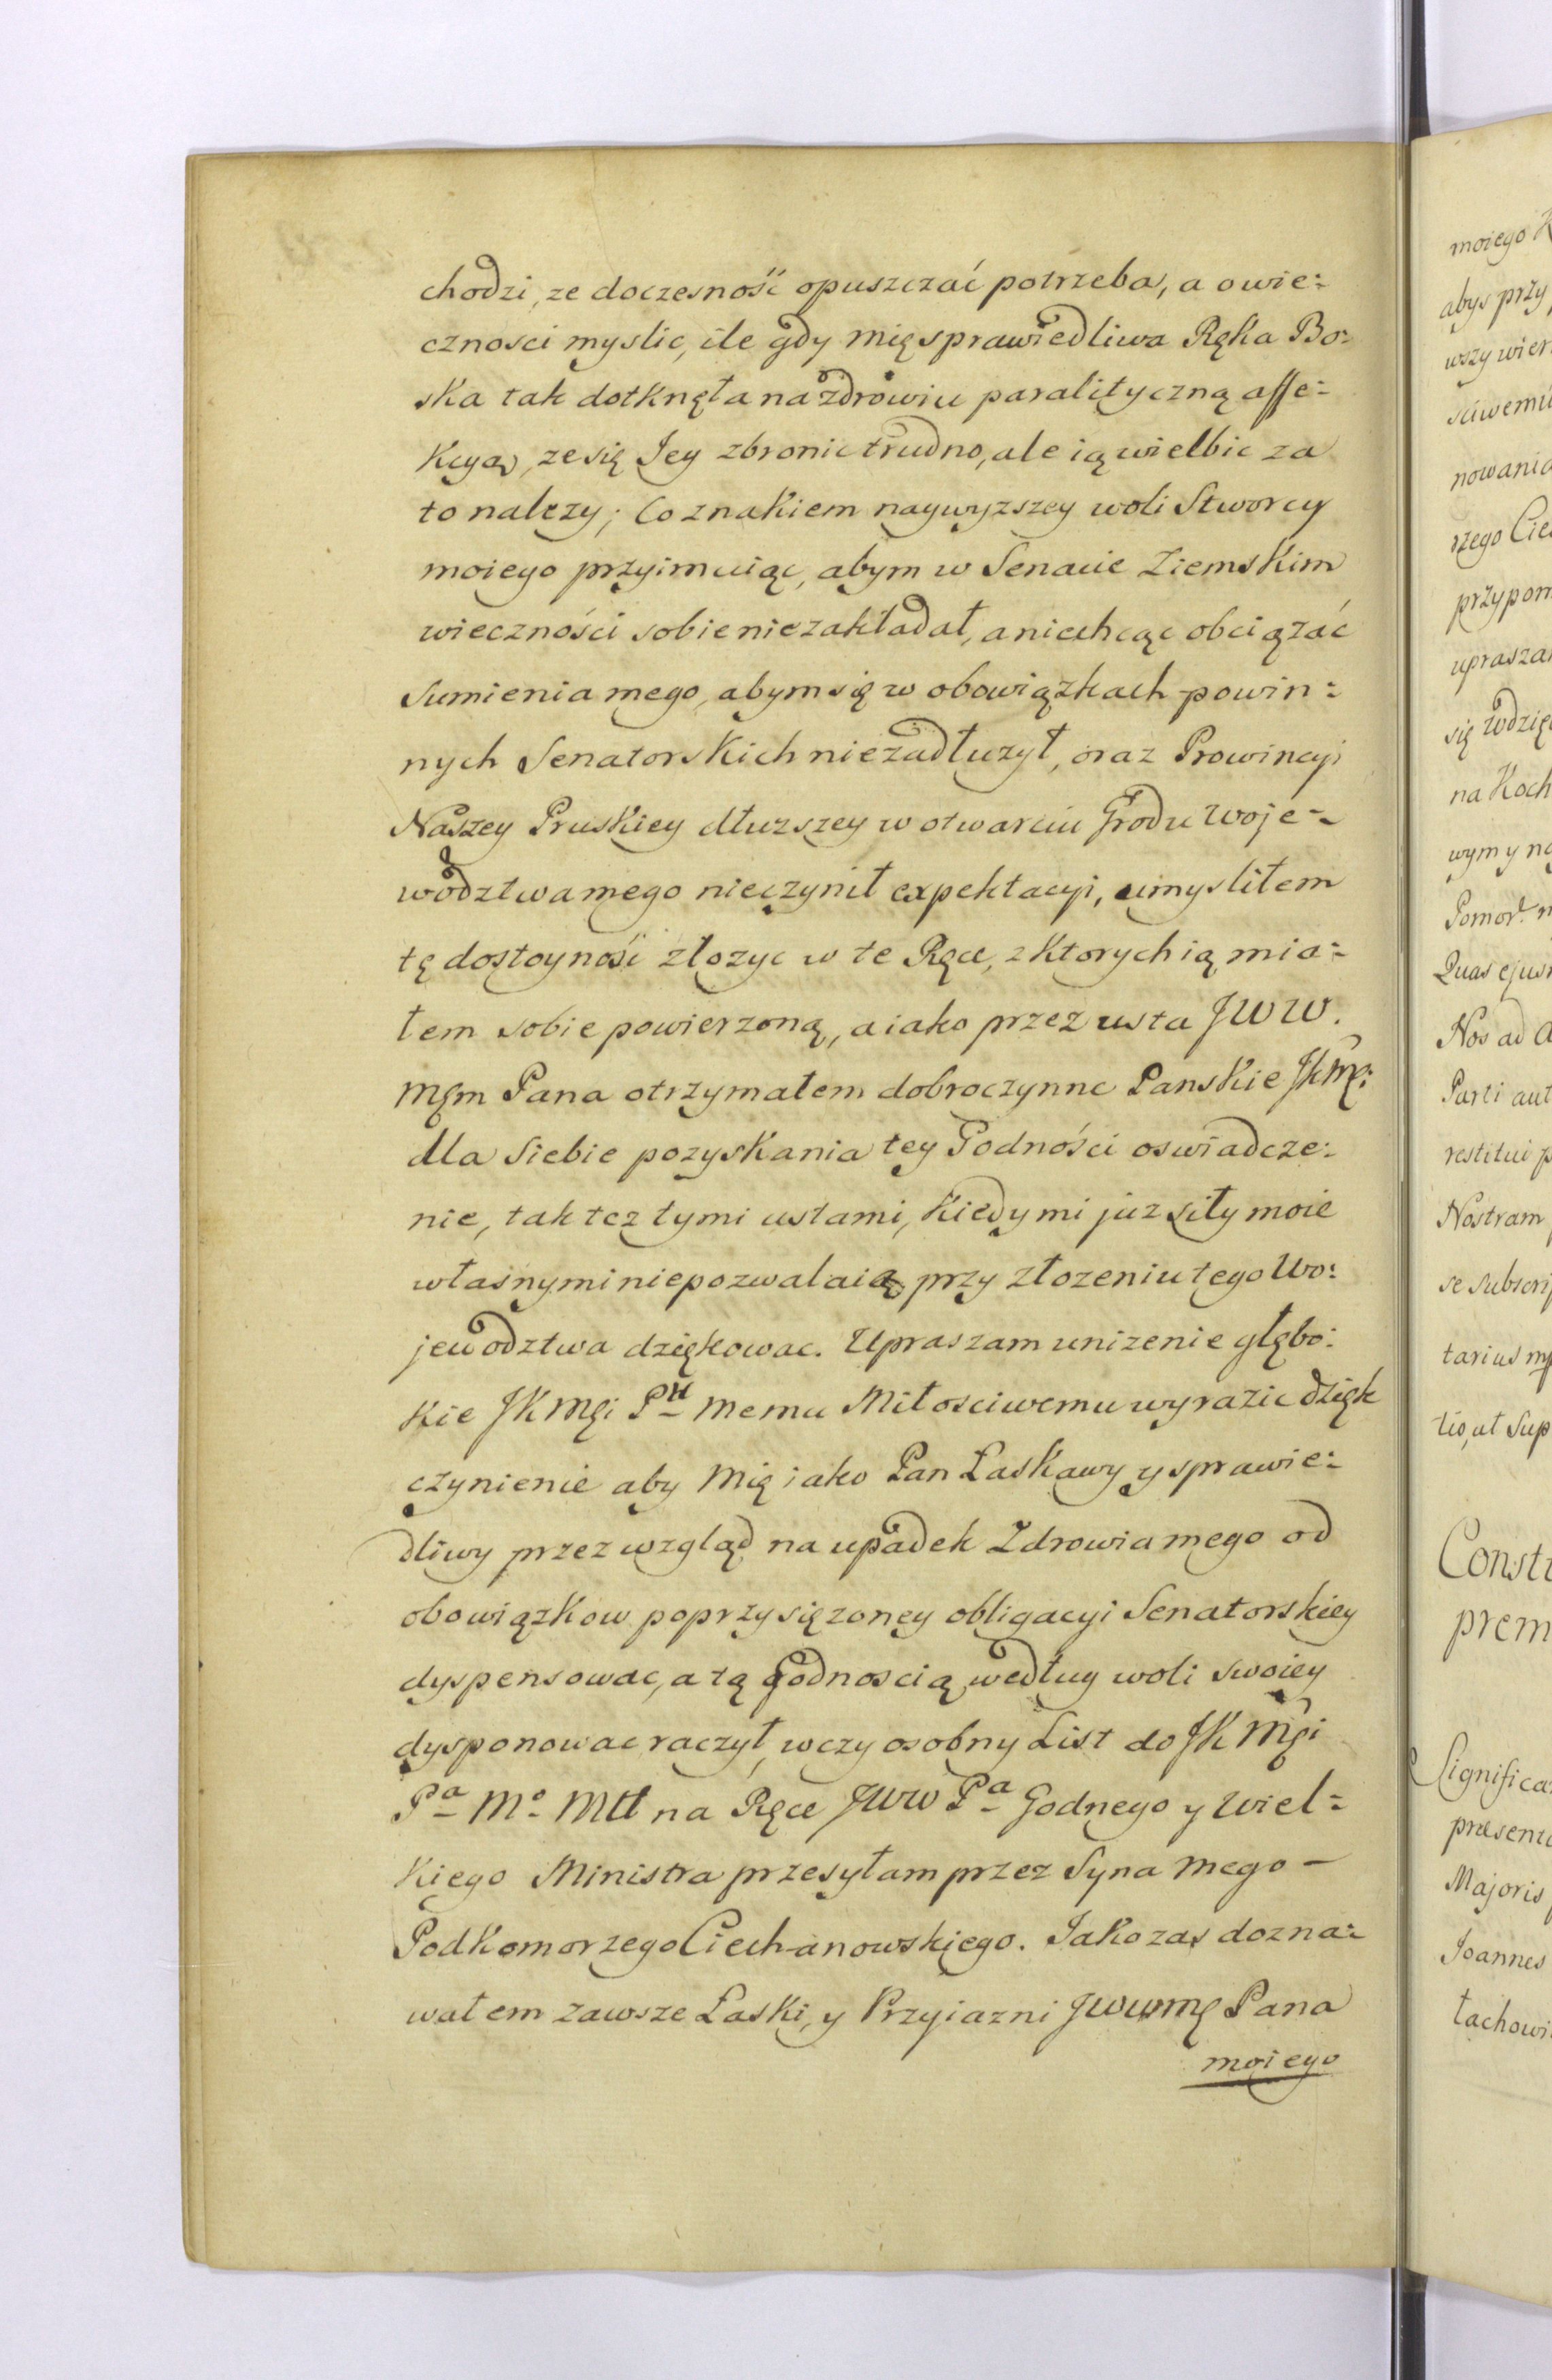 chodzi, ze doczesność opuszczać potrzeba, a owie:
cznosci myslic, ile gdy mię sprawiedliwa Ręka Bo:
ska tak dotknęła na zdrowiu paralityczną affe:
kcyą, ze się Jey zbronic trudno, ale ią wielbic za
to nalezy; Co znakiem naywyzszey woli Stworcy
moiego przyimuiąc, abym w Senacie Ziemskim
wieczności sobie niezakładał, a niechcąc obciązać
Sumienia mego, abym się w obowiązkach powin:
nych Senatorskich niezadłuzył, oraz Prowincyi
Naszey Pruskiey dłuzszey w otwarciu Grodu Woje=
wodztwa mego nieczynił expektacyi, umysliłem
tę dostoyność złozyc w te Ręce, z ktorych ią mia:
łem sobie powierzoną, a iako przez usta JWW.
Mgm Pana otrzymałem dobroczynne Panskie JKMci
dla Siebie pozyskania tey Godności oswiadcze:
nie, tak tez tymi ustami, kiedy mi juz siły moie
własnymi niepozwalaią przy złozeniu tego Wo:
jewodztwa dziękowac. Upraszam unizenie głębo:
kie JKMci Pu Memu Miłosciwemu wyrazic dzięk
czynienie aby Mię iako Pan Łaskawy y sprawie:
dliwy przez wzgląd na upadek Zdrowia mego od
obowiązkow poprzysięzoney obligacyi Senatorskiey
dyspensowac, a tą godnoscią według woli swoiey
dysponowac raczył, wczy osobny List do JKMci
Pa Mo Mtt na Ręce JWW Pa Godnego y Wiel=
kiego Ministra przesyłam przez Syna Mego –
Podkomorzego Ciechanowskiego. Jako zas dozna:
wałem zawsze Łaski, y Przyiazni JWWMę Pana
moiego
moiego
abys przy
wszy wier
sciwemu
nowania
rzego Cie
przypom
upraszam
się wdzię
na Koch
wym y na
Pomor.
Quas ejus
Nos ad
Parti aut
restitui p
Nostram
se subscri
tarius mp
tio, ut Sup
Consti
prem
Significa
præsent
Majoris
Joannes
tachowi